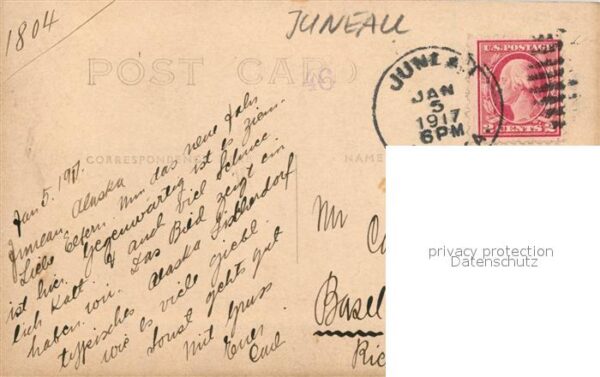 1804
JUNEAU
POST CARD
46
JUNEAU
JAN
5
1917
6PM
U.S. POSTAGE
2 CENTS 2
CORRESPONDENCE
NAME
Jan 5. 191
Juneau, Alaska
Liebe Eltern. Nun das neue Jahr
ist hier. Gegenwärtig ist es ziem-
lich kalt & auch viel Schnee
haben wir. Das Bild zeigt ein
typisches Alaska Fischerdorf
wie es viele giebt.
Sonst gehts gut
Mit Gruss
Euer
Carl
Mr
Basel
Ric
privacy protection
Datenschutz